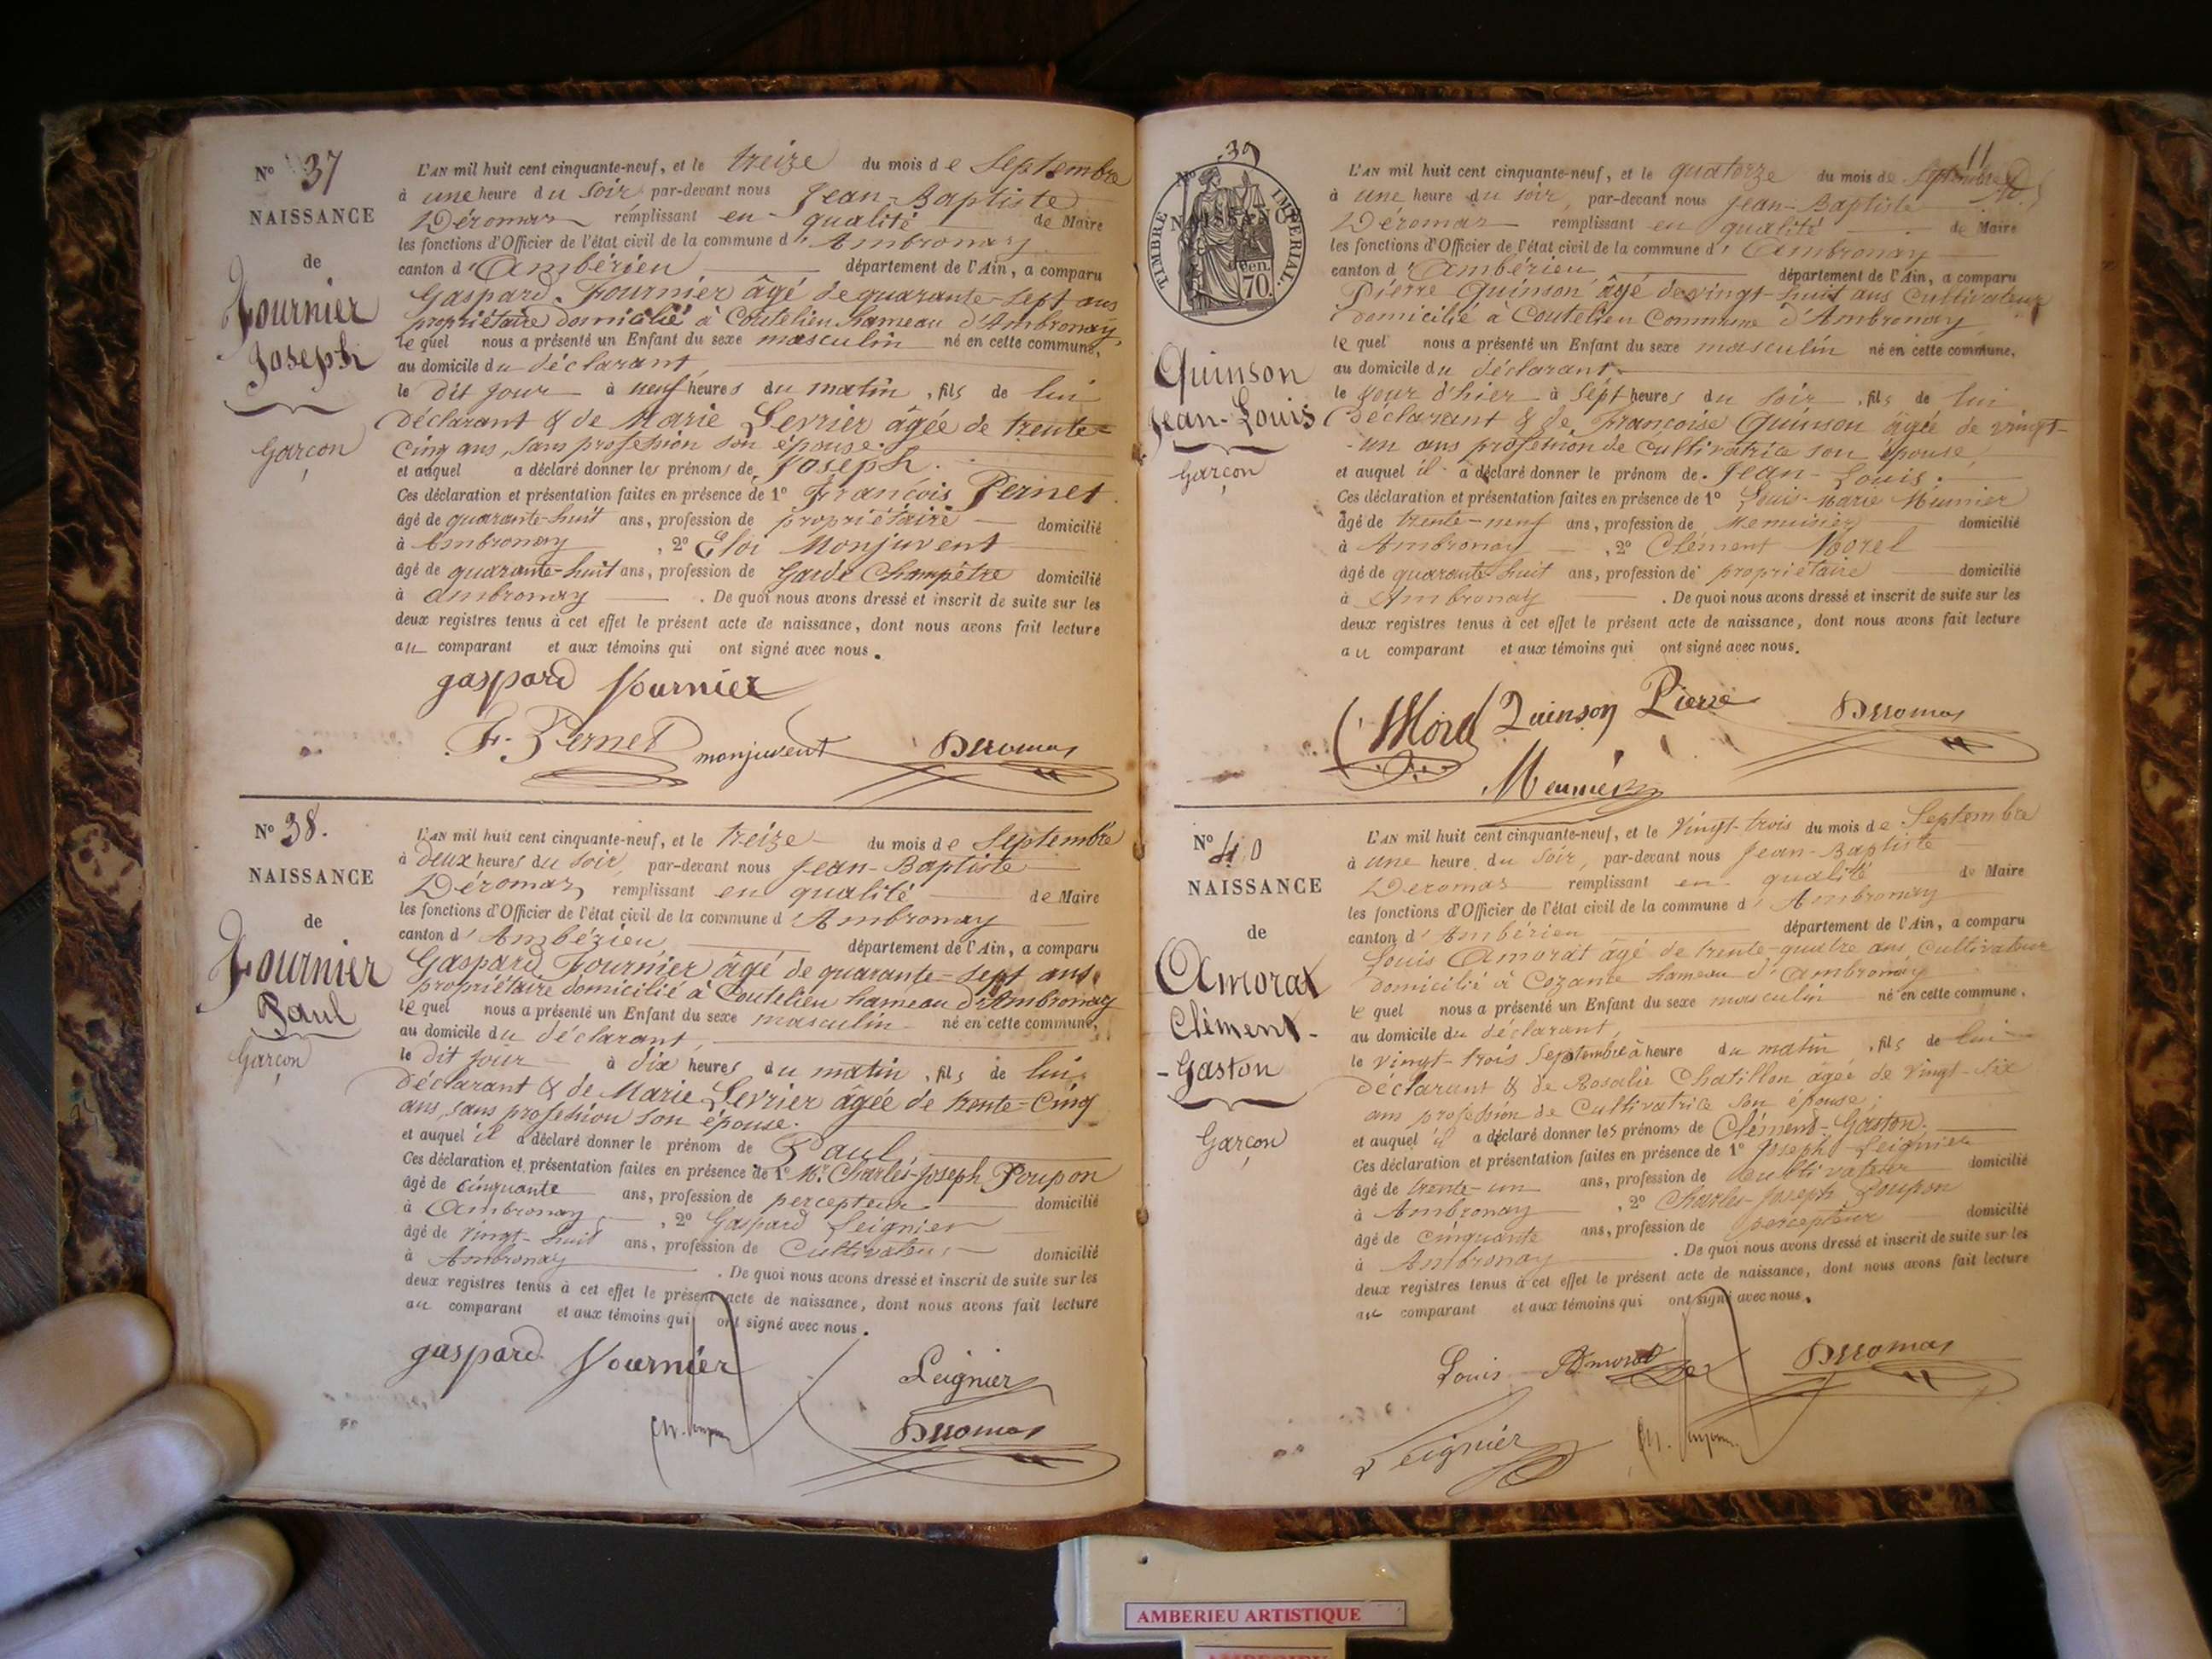 N° 37
NAISSANCE
de
Fournier
Joseph
Garçon
L'AN mil huit cent cinquante-neuf, et le treize du mois de Septembre
à une heure du soir, par-devant nous Jean-Baptiste
Déromas remplissant en qualité de Maire
les fonctions d'Officier de l'état civil de la commune d'Ambronay
canton d'Ambérieu département de l'Ain, a comparu
Gaspard Fournier âgé de quarante-sept ans
propriétaire domicilié à Coutelieu hameau d'Ambronay,
lequel nous a présenté un Enfant du sexe masculin né en cette commune,
au domicile du déclarant
le dit jour à neuf heures du matin, fils de lui
Déclarant & de Marie Levrier âgée de trente-
cinq ans, sans profession son épouse.
et auquel a déclaré donner les prénoms de Joseph.
Ces déclaration et présentation faites en présence de 1° François Pernet
âgé de quarante-huit ans, profession de propriétaire domicilié
à Ambronay, 2° Eloi Monjuvent
âgé de quarante-huit ans, profession de Garde Champêtre domicilié
à Ambronay. De quoi nous avons dressé et inscrit de suite sur les
deux registres tenus à cet effet le présent acte de naissance, dont nous avons fait lecture
au comparant et aux témoins qui ont signé avec nous.
gaspard fournier
F. Pernet monjuvent Deromas
N° 38.
NAISSANCE
de
Fournier
Paul
Garçon
L'AN mil huit cent cinquante-neuf, et le treize du mois de Septembre
à deux heures du soir, par-devant nous Jean-Baptiste
Déromas, remplissant en qualité de Maire
les fonctions d'Officier de l'état civil de la commune d'Ambronay
canton d'Ambérieu, département de l'Ain, a comparu
Gaspard Fournier âgé de quarante-sept ans,
propriétaire domicilié à Coutelieu hameau d'Ambronay
lequel nous a présenté un Enfant du sexe masculin né en cette commune,
au domicile du déclarant,
le dit jour à dix heures du matin, fils de lui
Déclarant & de Marie Levrier âgée de trente-cinq
ans, sans profession son épouse.
et auquel il a déclaré donner le prénom de Paul,
Ces déclaration et présentation faites en présence de 1° Mr. Charles-Joseph Poupon
âgé de cinquante ans, profession de percepteur domicilié
à Ambronay, 2° Gaspard Leignier
âgé de vingt-huit ans, profession de Cultivateur domicilié
à Ambronay. De quoi nous avons dressé et inscrit de suite sur les
deux registres tenus à cet effet le présent acte de naissance, dont nous avons fait lecture
au comparant et aux témoins qui ont signé avec nous.
gaspard fournier
Leignier
Deromas
39
N°
NAISSANCE
TIMBRE IMPÉRIAL.
70.
Quinson
Jean-Louis
Garçon
11
L'AN mil huit cent cinquante-neuf, et le quatorze du mois de Septembre
à une heure du soir, par-devant nous Jean-Baptiste
Déromas remplissant en qualité de Maire
les fonctions d'Officier de l'état civil de la commune d'Ambronay
canton d'Ambérieu, département de l'Ain, a comparu
Pierre Quinson âgé de vingt-huit ans Cultivateur
domicilié à Coutelieu Commune d'Ambronay
lequel nous a présenté un Enfant du sexe masculin né en cette commune,
au domicile du déclarant
le jour d'hier à sept heures du soir, fils de lui
Déclarant & de Françoise Quinson âgée de vingt-
un ans profession de cultivatrice son épouse,
et auquel il a déclaré donner le prénom de Jean-Louis.
Ces déclaration et présentation faites en présence de 1° Louis-Marie Meunier
âgé de trente-neuf ans, profession de Menuisier domicilié
à Ambronay, 2° Clément Morel
âgé de quarante-huit ans, profession de propriétaire domicilié
à Ambronay. De quoi nous avons dressé et inscrit de suite sur les
deux registres tenus à cet effet le présent acte de naissance, dont nous avons fait lecture
au comparant et aux témoins qui ont signé avec nous.
C Morel Quinson Pierre Deromas
Meunier
N° 40
NAISSANCE
de
Amorat
Clément-
-Gaston
Garçon
L'AN mil huit cent cinquante-neuf, et le Vingt-trois du mois de Septembre
à une heure du soir, par-devant nous Jean-Baptiste
Déromas remplissant en qualité de Maire
les fonctions d'Officier de l'état civil de la commune d'Ambronay
canton d'Ambérieu département de l'Ain, a comparu
Louis Amorat âgé de trente-quatre ans, Cultivateur
domicilié à Cozance hameau d'Ambronay
lequel nous a présenté un Enfant du sexe masculin né en cette commune,
au domicile du déclarant,
le vingt-trois Septembre à heure du matin, fils de lui
Déclarant & de Rosalie Chatillon âgée de vingt-six
ans profession de Cultivatrice son épouse;
et auquel il a déclaré donner les prénoms de Clément-Gaston.
Ces déclaration et présentation faites en présence de 1° Joseph Leignier
âgé de trente-un ans, profession de Cultivateur domicilié
à Ambronay, 2° Charles-Joseph Poupon
âgé de Cinquante ans, profession de percepteur domicilié
à Ambronay. De quoi nous avons dressé et inscrit de suite sur les
deux registres tenus à cet effet le présent acte de naissance, dont nous avons fait lecture
au comparant et aux témoins qui ont signé avec nous.
Louis Amorat Deromas
Leignier
AMBERIEU ARTISTIQUE